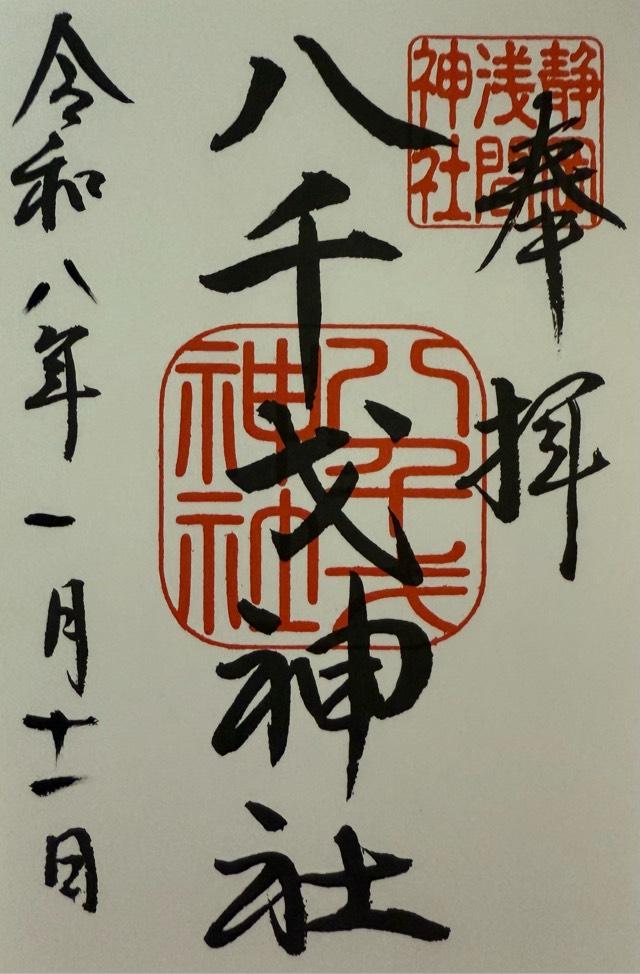 奉拝
静岡
浅間
神社
八千戈神社
八千戈
神社
令和八年一月十一日